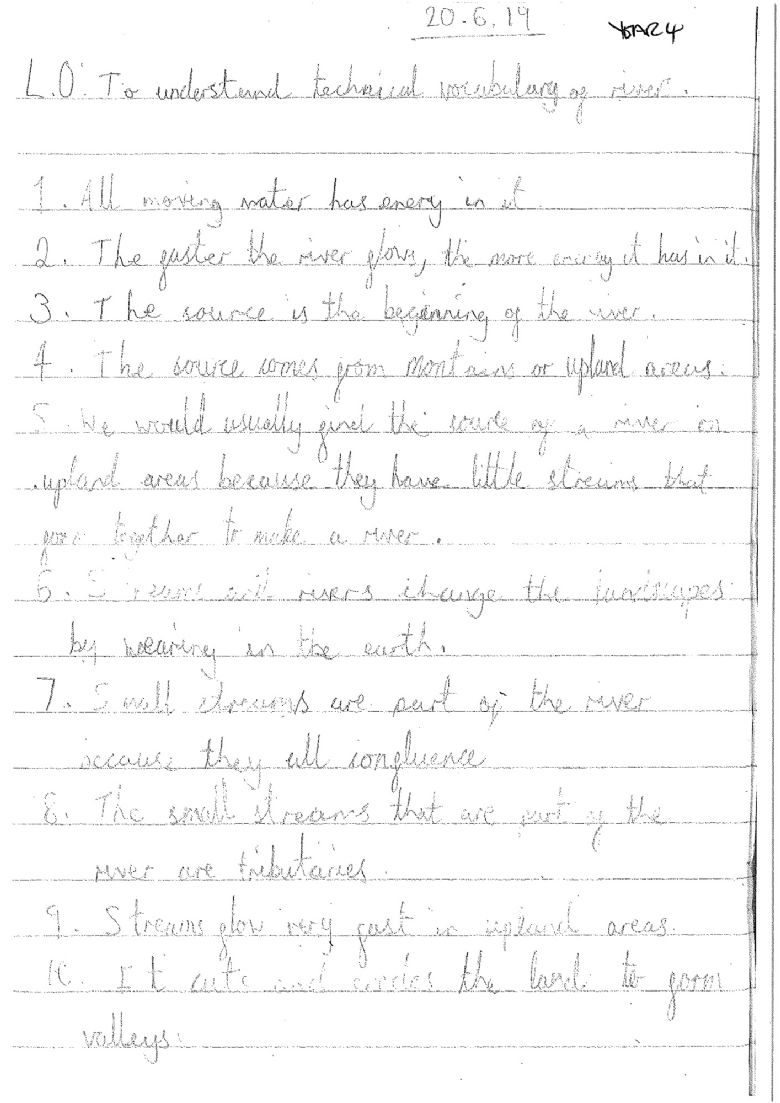 20.6.19
YEAR 4
L.O: To understand technical vocabulary of river.
1. All moving water has enery in it
2. The faster the river flows, the more energy it has in it.
3. The source is the beginning of the river.
4. The source comes from montains or upland areas.
5. We would usually find the source of a river in
upland areas because they have little streams that
join together to make a river.
6. Streams and rivers change the landscapes
by wearing in the earth.
7. Small streams are part of the river
because they all confluence
8. The small streams that are part of the
river are tributaries.
9. Streams flow very fast in upland areas.
10. It cuts and erodes the land to form
valleys.